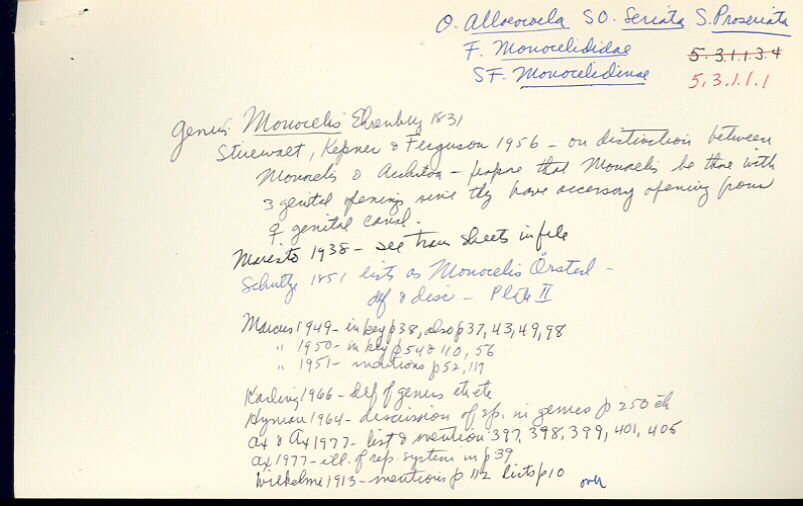 O. Alloeocoela SO. Seriata S. Proseriata
F. Monocelididae 5.3.1.1.3.4
SF. Monocelidinae 5.3.1.1.1
Genus Monocelis Ehrenberg 1831
Stirewalt, Kepner & Ferguson 1956 - on distinction between
Monocelis & - propose that Monocelis be those with
3 genital openings since they have accessory opening from
♀ genital canal.
1938 - see trans sheets in file
Schultze 1851 lists as Monocelis Örsted -
def & disc - Plate II
Marcus 1949 - in key p38, also p37, 43, 49, 98
" 1950 - in key p54 & 110, 56
" 1951 - mentions p52, 117
Karling 1966 - def of genus etc etc
Hyman 1964 - discussion of sp. in genus p 250 etc
Ax & Ax 1977 - list & mention 397, 398, 399, 401, 405
Ax 1977 - ill. of rep. system in p39
Wilhelmi 1913 - mentions p 112 lists p10 over